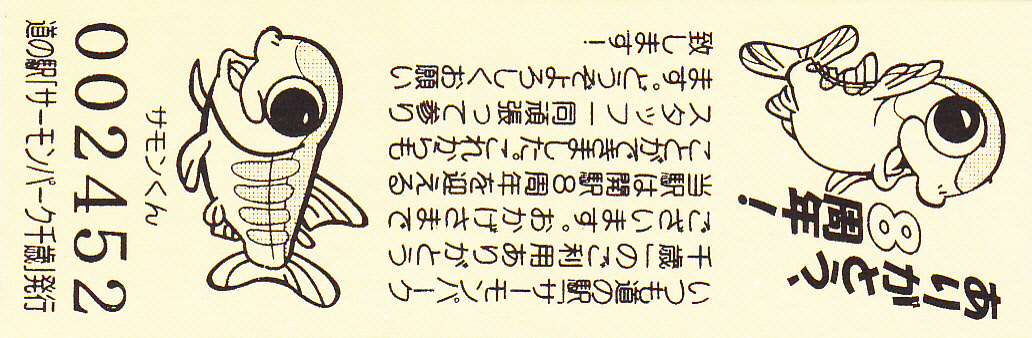 ありがとう、
8周年!
いつも道の駅「サーモンパーク
千歳」のご利用ありがとう
ございます。おかげさまで
当駅は開駅8周年を迎える
ことができました。これからも
スタッフ一同頑張って参り
ます。どうぞよろしくお願い
致します!
サモンくん
002452
道の駅「サーモンパーク千歳」発行